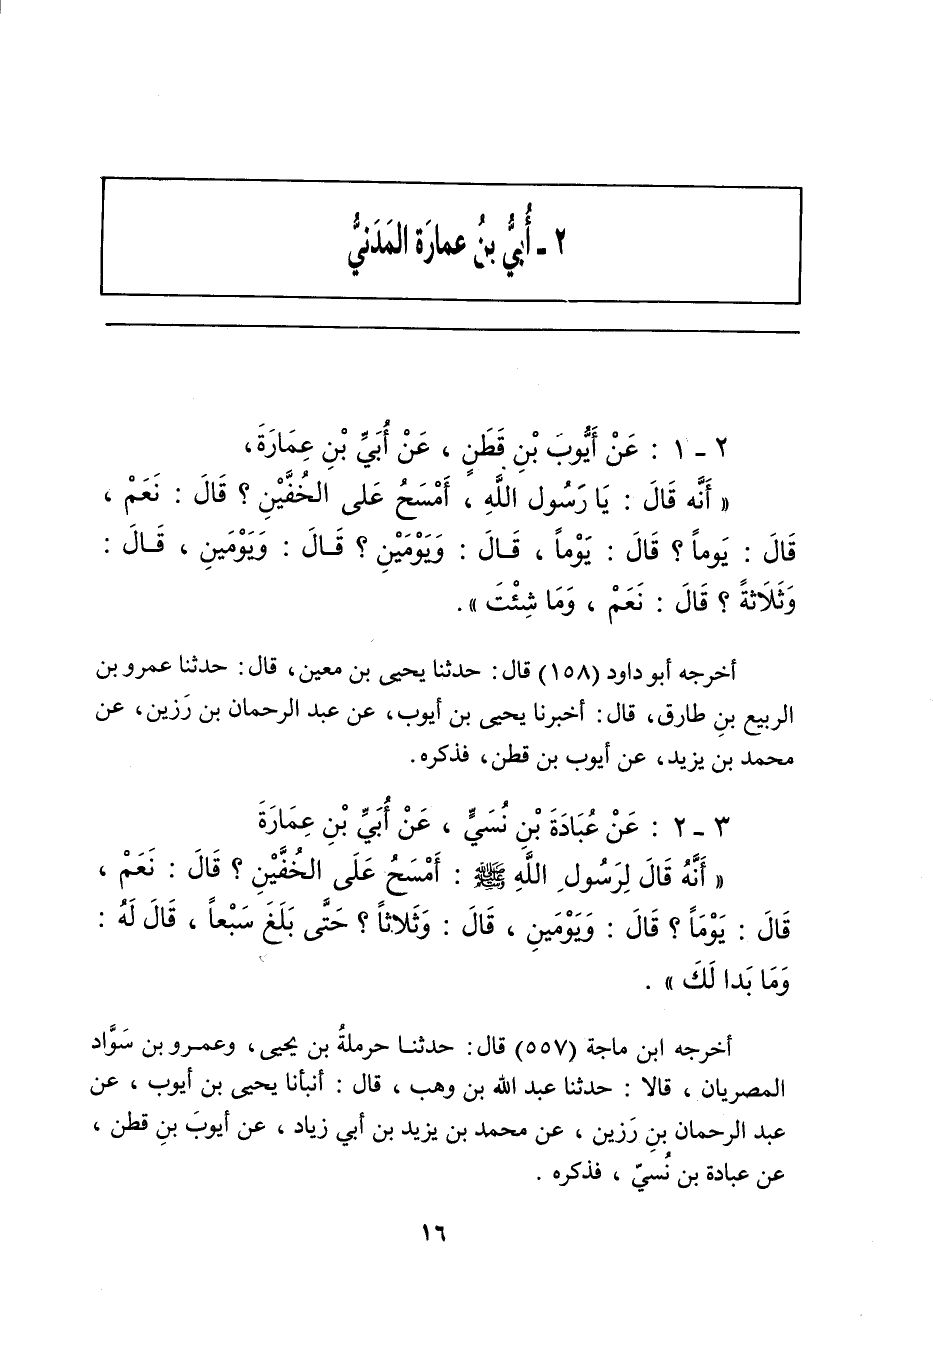 ٢ - أُبيُّ بنُ عمارَة المَدَنيُّ
٢ - ١ : عَنْ أَيُّوبَ بْنِ قَطَنٍ ، عَنْ أُبَيِّ بْنِ عِمَارَةَ،
« أَنَّه قَالَ : يَا رَسُول اللَّهِ ، أَمْسَحُ عَلى الخُفَّيْنِ ؟ قَالَ : نَعَمْ ،
قَالَ : يَوماً ؟ قَالَ : يَوْماً ، قَـالَ : وَيَوْمَيْنِ ؟ قَـالَ : وَيَوْمَينِ ، قَـالَ :
وَثَلَاثةً ؟ قَالَ : نَعَمْ ، وَمَا شِئْتَ ».
أخرجه أبو داود (١٥٨) قال: حدثنا يحيى بن معين، قال: حدثنا عمرو بن
الربيع بنِ طارق، قال: أخبرنا يحيى بن أيوب، عن عبد الرحمان بن رَزين، عن
محمد بن يزيد، عن أيوب بن قطن، فذكره.
٣ - ٢ : عَنْ عُبَادَةَ بْنِ نُسَيٍّ ، عَنْ أُبَيِّ بْنِ عِمَارَةَ
« أَنَّهُ قَالَ لِرَسُولِ اللَّهِ ﷺ : أَمْسَحُ عَلَى الخُفَّيْنِ ؟ قَالَ : نَعَمْ ،
قَالَ : يَوْمَاً ؟ قَالَ : وَيَوْمَينِ ، قَالَ : وَثَلاثاً ؟ حَتَّى بَلَغَ سَبْعاً ، قَالَ لَهُ :
وَمَا بَدا لَكَ » .
أخرجه ابن ماجة (٥٥٧) قال: حدثنـا حرملةُ بن يحيى، وعمـرو بن سَوَّاد
المصريان ، قالا : حدثنا عبد الله بن وهب ، قال : أنبأنا يحيى بن أيوب ، عن
عبد الرحمان بنِ رَزين ، عن محمد بن يزيد بن أبي زياد ، عن أيوبَ بنِ قطن ،
عن عبادة بن نُسيّ ، فذكره .
١٦